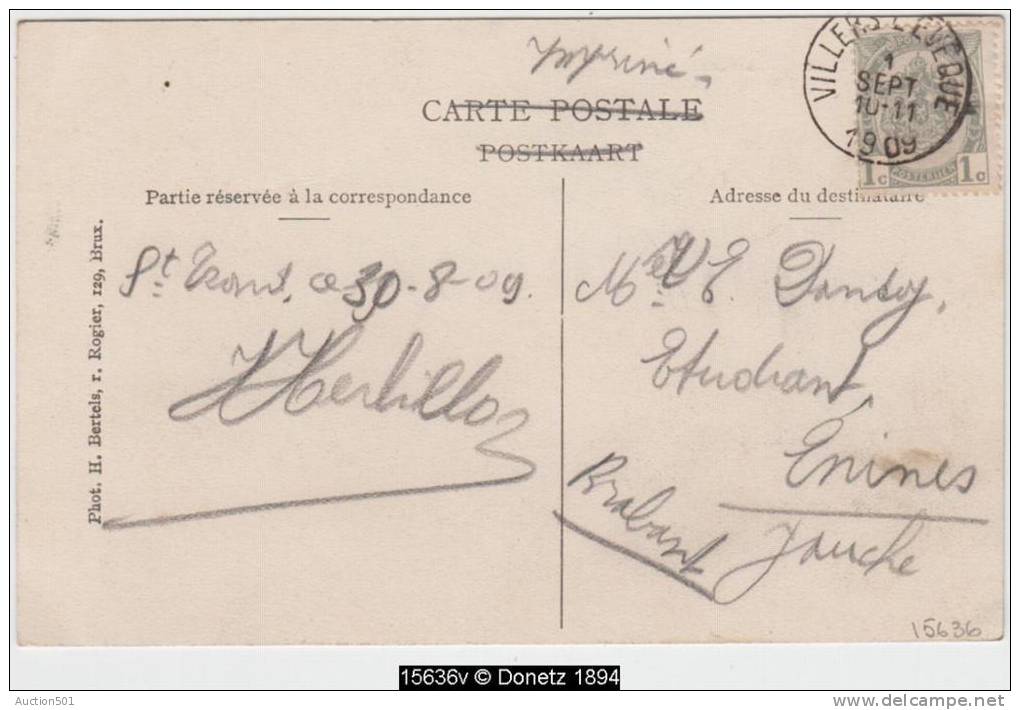 Imprimé.
CARTE POSTALE
POSTKAART
VILLERS L'EVEQUE
1
SEPT
10-11
1909
1c 1c
Partie réservée à la correspondance
Adresse du destinataire
Phot. H. Bertels, r. Rogier, 129, Brux.
St Trond, ce 30-8-09.
Mr E. Dantoy,
Etudiant,
Enines
Brabant
Jauche
15636
15636v © Donetz 1894
Auction501
www.delcampe.net